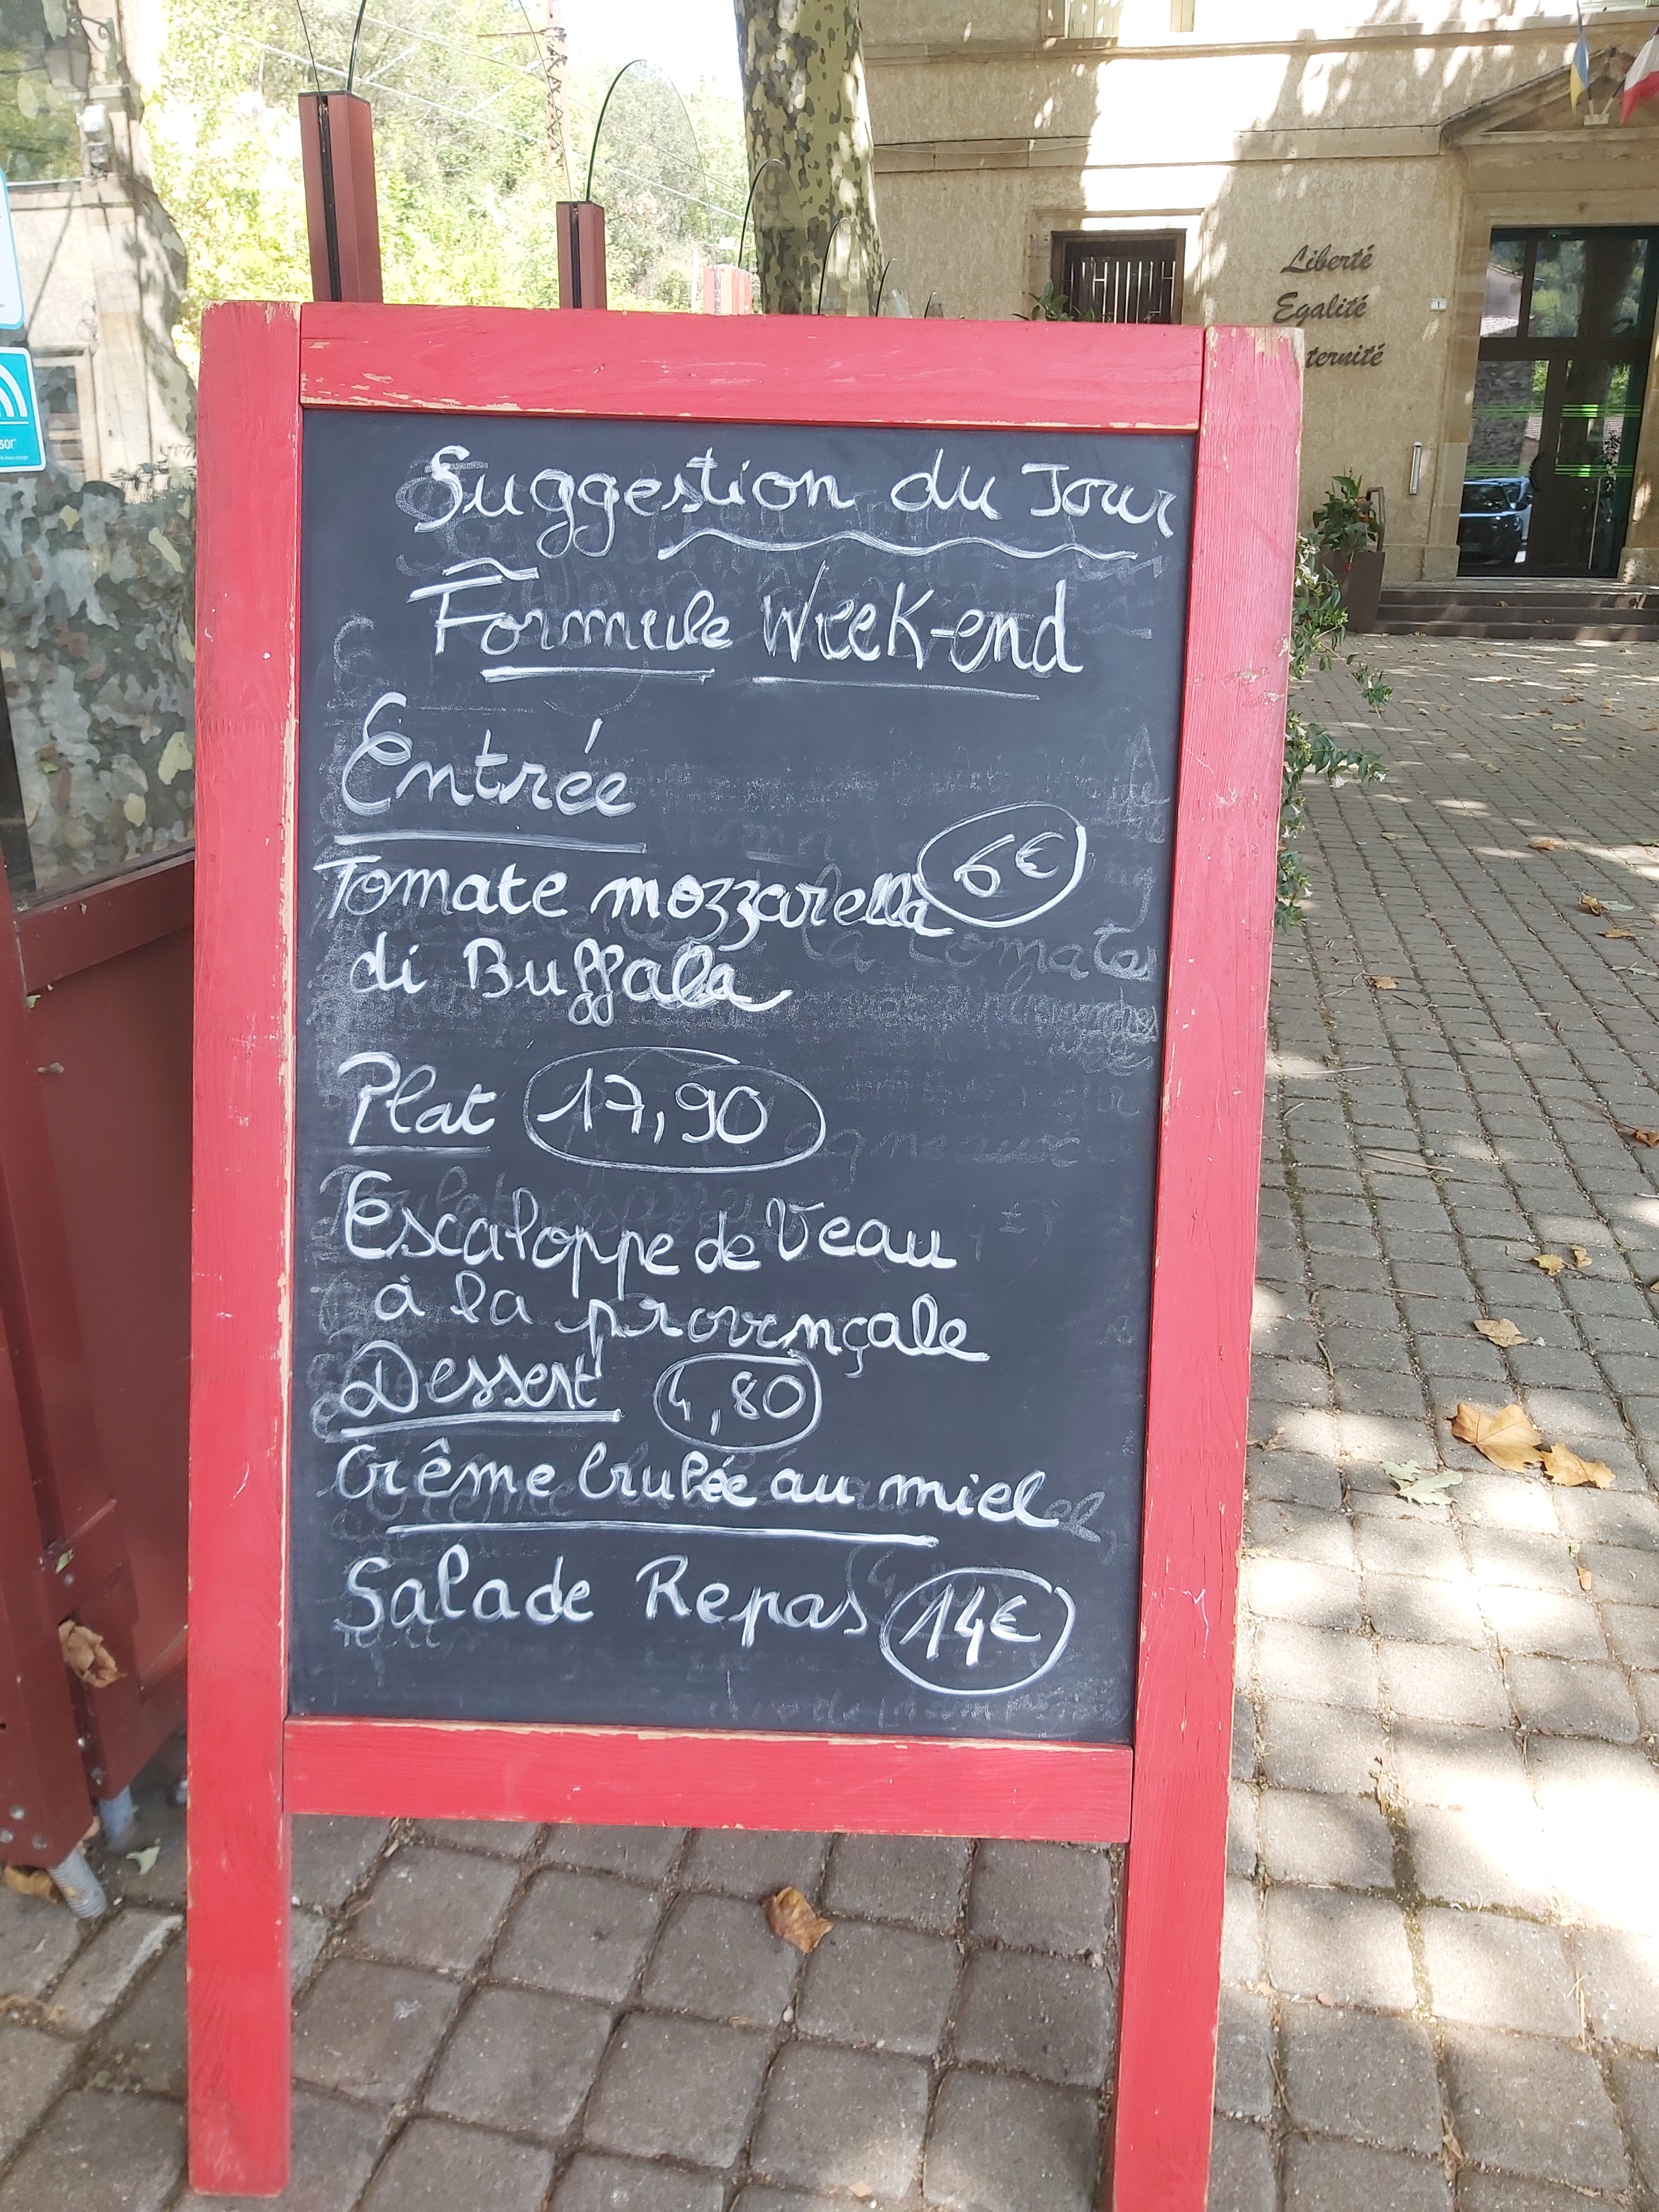 Liberté
Egalité
ternité
sor
Suggestion du Jour
Formule Week-end
Entrée
6€
Tomate mozzarella
di Buffala
Plat 17,90
Escaloppe de Veau
à la provençale
Dessert 4,80
Crême brulée au miel
Salade Repas 14€